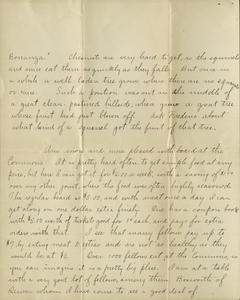 Bonanza." Chesnuts are very hard to get, as the squirrels
and mice eat them as quickly as they fall. But once in
a while a well laden tree grows where there are no squirrels
or mice. Such a position was out in the middle of
a great clean pastured hillside, where grew a great tree
whose fruit had just blown off. Ask Fredena about
what kind of a squirrel got the fruit of that tree.
Am more and more pleased with board at the
Commons. It is pretty hard to get simple food at any
price, but here I can get it for $2.00 a week, with a saving of
over my other joint, where the food was often highly seasoned.
The regular board is $3.00, and with meat once a day I can
get along on one dollar extra finely. One has a coupon book
with $5.00 worth of tickets good for cash, and pays for extra
orders with that. I see that many fellows pay up to
$7 by eating meat & extras and are not as healthy as they
would be at $4. Over 1000 fellows eat at the Commons, so
you can imagine it is a pretty big place. I am at a table
with a very good lot of fellows, among them Bosworth of
whom I have come to see a good deal of